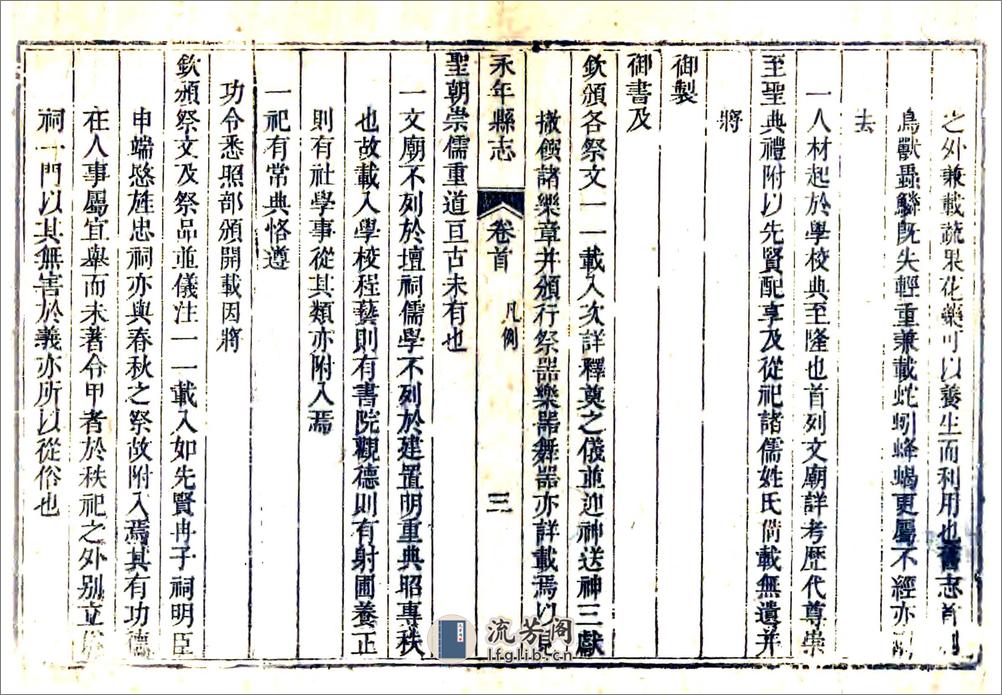 之外兼載蔬果花藥可以養生而利用也舊志首列
鳥獸蟲鱗旣失輕重兼載蛇蚓蜂蝎更屬不經亦
去
一人材起於學校典至隆也首列文廟詳考歷代尊崇
至聖典禮附以先賢配享及從祀諸儒姓氏備載無遺并
將
御製
御書及
欽頒各祭文一一載入次詳釋奠之儀並迎神送神三獻
撤饌諸樂章并頒行祭器樂器舞器亦詳載焉以見
永年縣志 卷首 凡例 三
聖朝崇儒重道亘古未有也
一文廟不列於壇祠儒學不列於建置明重典昭專秩
也故載入學校程藝則有書院觀德則有射圃養正
則有社學事從其類亦附入焉
一祀有常典恪遵
功令悉照部頒開載因將
欽頒祭文及祭品並儀注一一載入如先賢冉子祠明臣
申端愍旌忠祠亦與春秋之祭故附入焉其有功德
在人事屬宜舉而未著令甲者於秩祀之外别立
祠一門以其無害於義亦所以從俗也
流芳阁
lfglib.cn